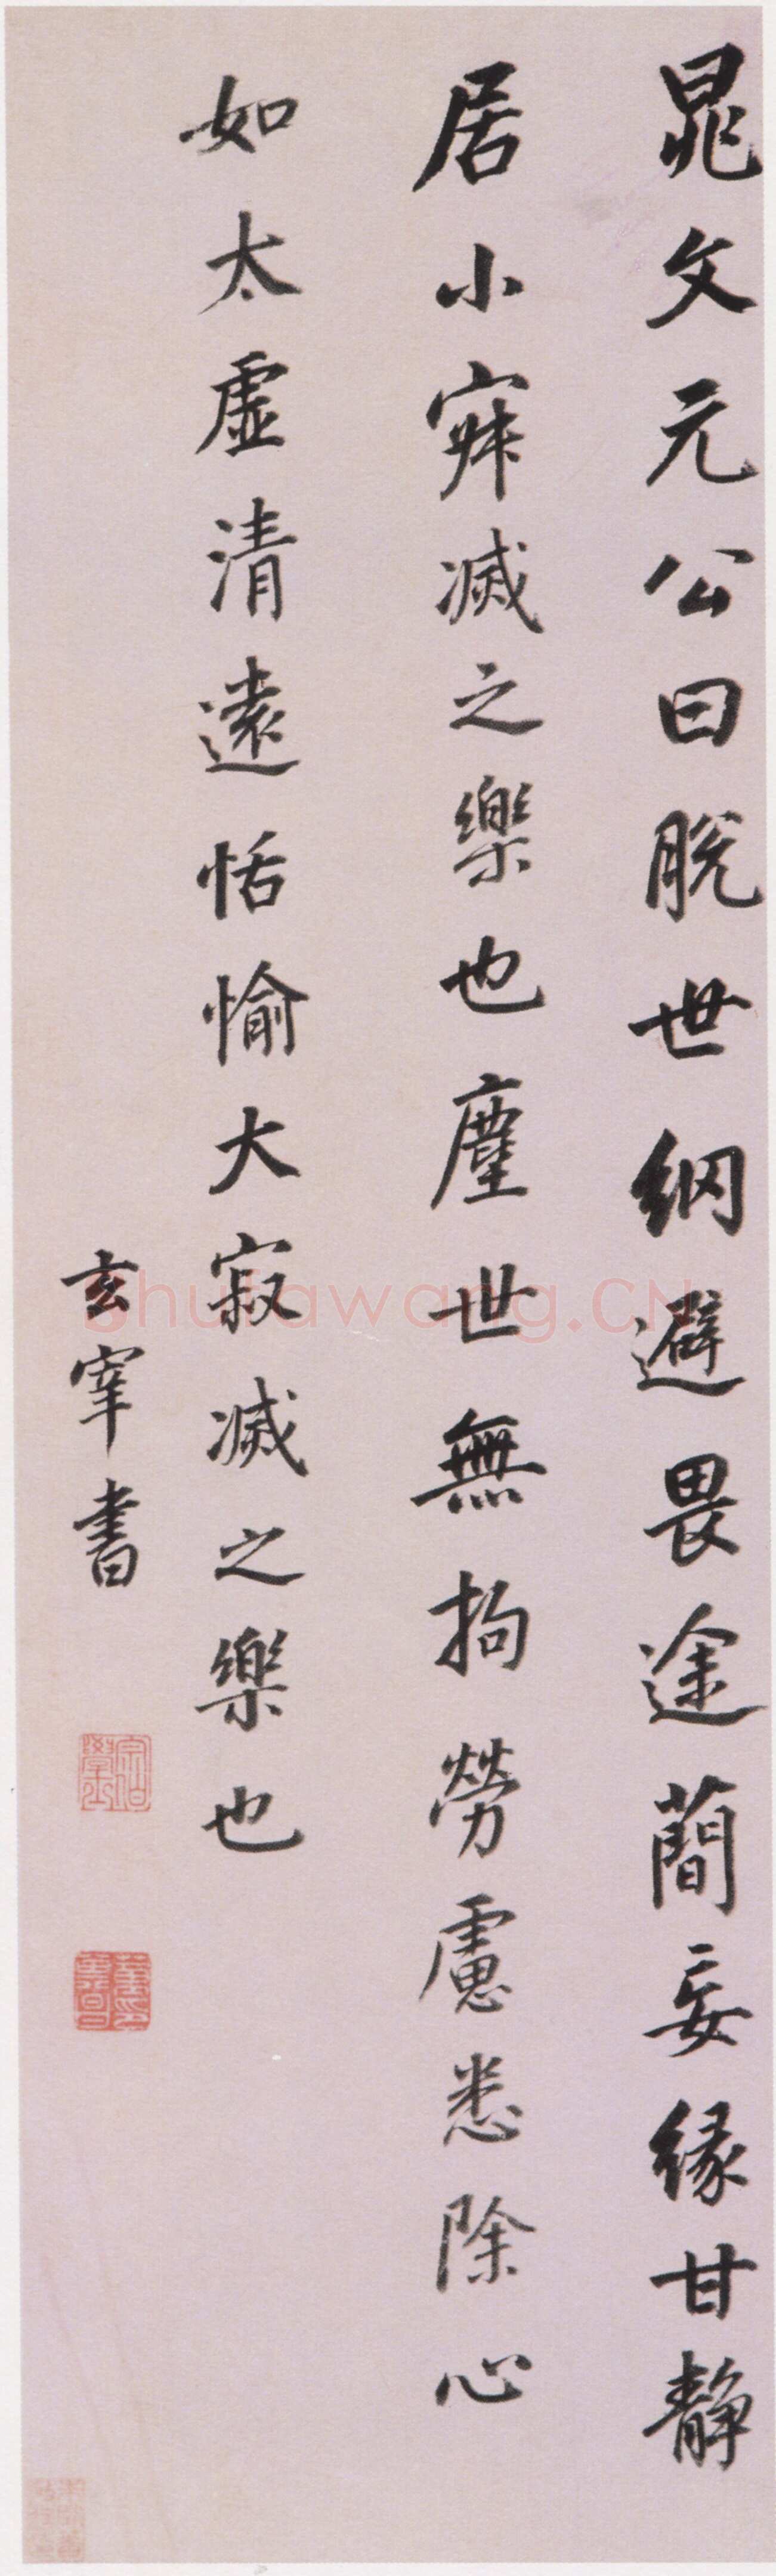 晁文元公曰脫世網避畏途蕳妄緣甘靜
居小㝥滅之樂也塵世無拘勞慮悉除心
如太虛清遠恬愉大寂滅之樂也
玄宰書
宗伯學士
董其昌印
shufawang.CN